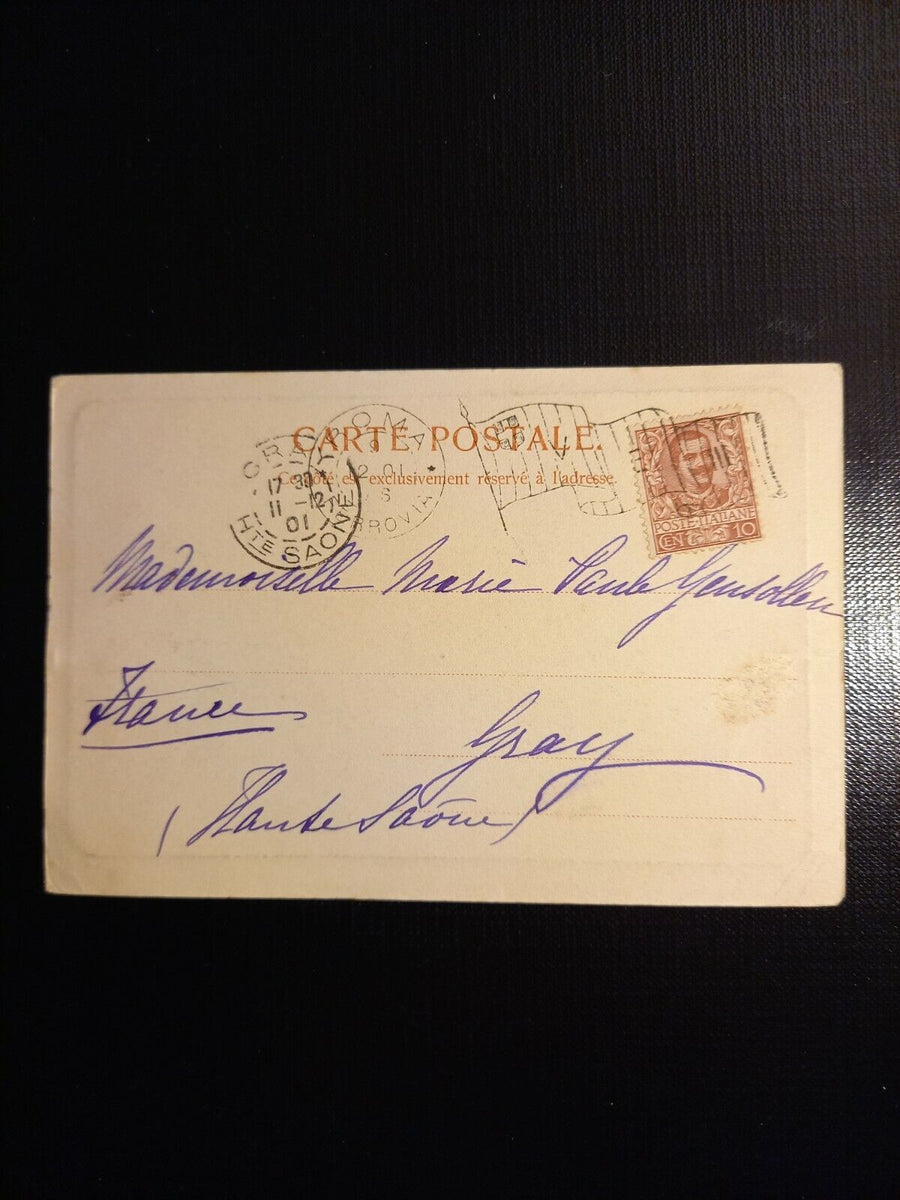 CARTE POSTALE.
Ce côté est exclusivement réservé à l'adresse.
GRAY
17 30
11 -12
01
HTE SAONE
ROMA
12.01
S
FERROVIA
V
POSTE ITALIANE
CEN 10
Mademoiselle Marie Paule Gensollen
France
Gray
(Haute Saône)